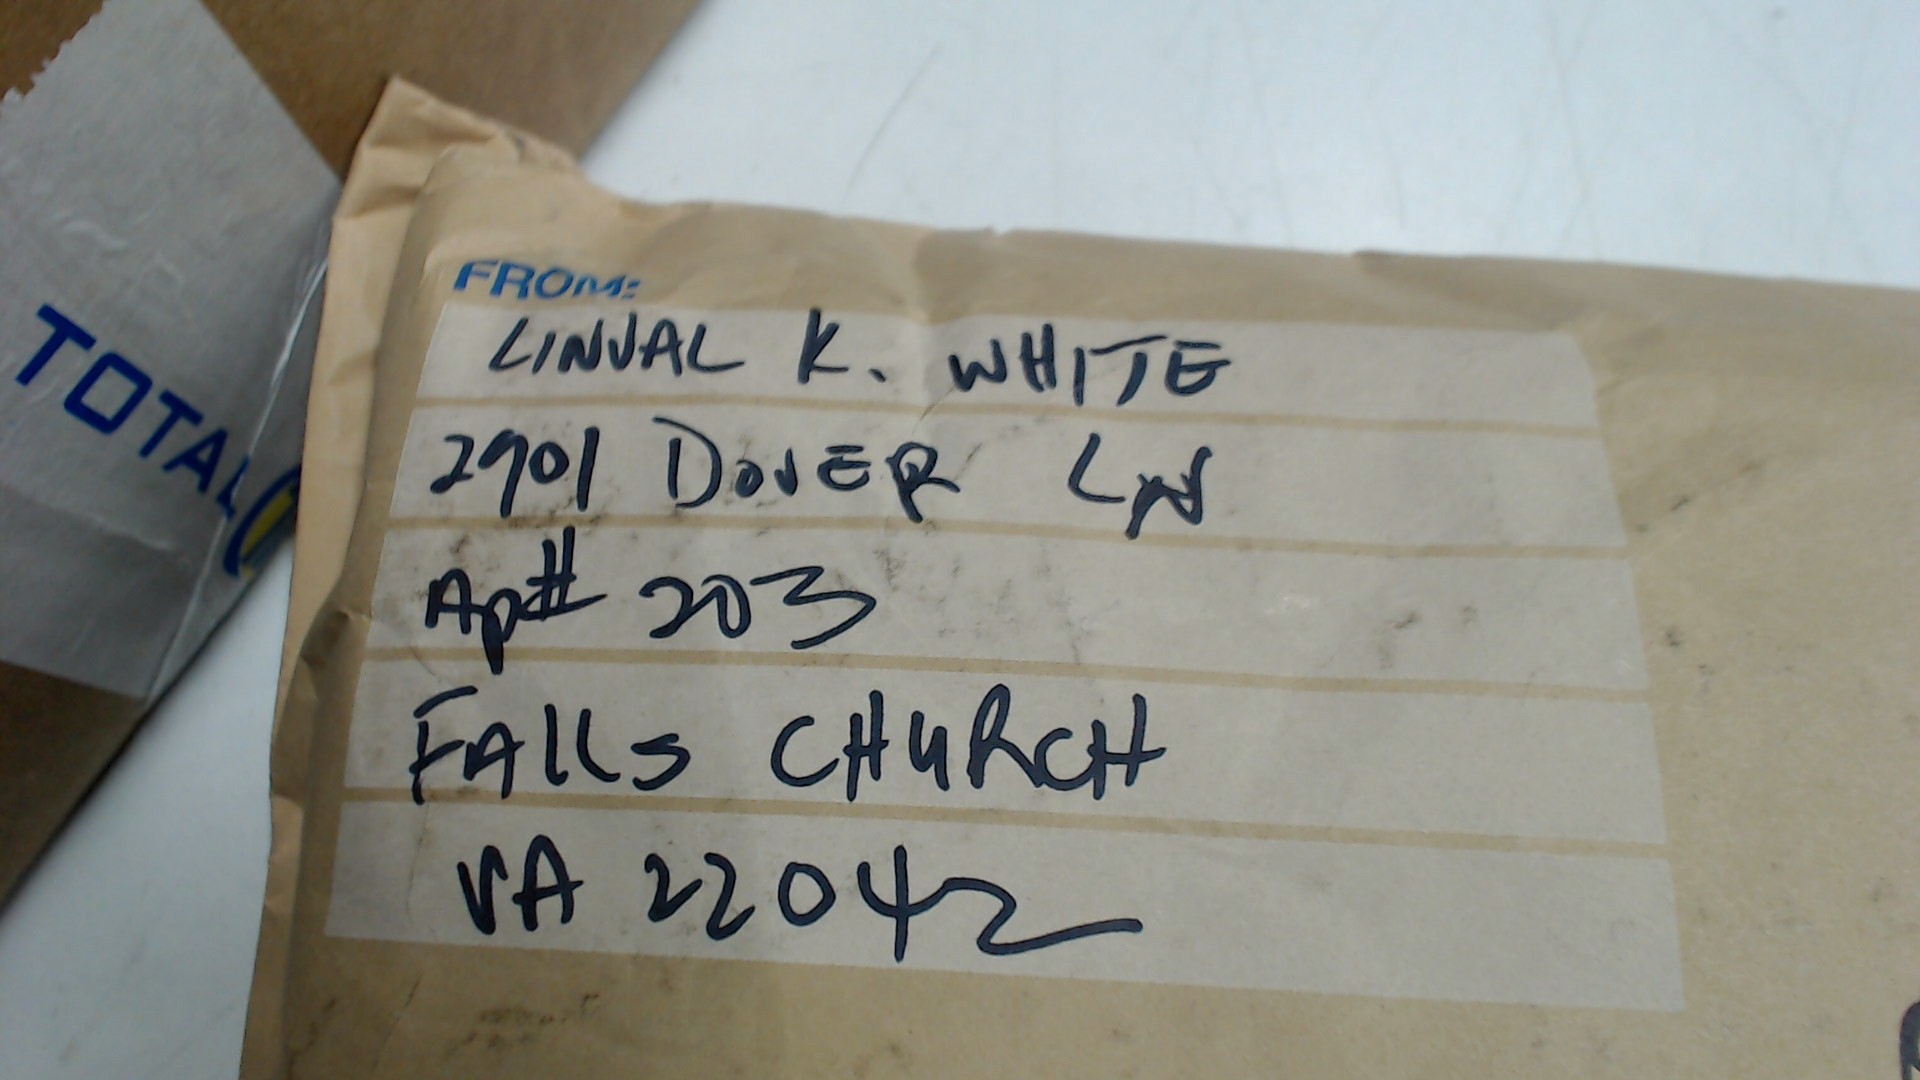 TOTAL
FROM:
LINVAL K. WHITE
2901 DOVER LN
Ap# 203
FAllS CHURCH
VA 22042